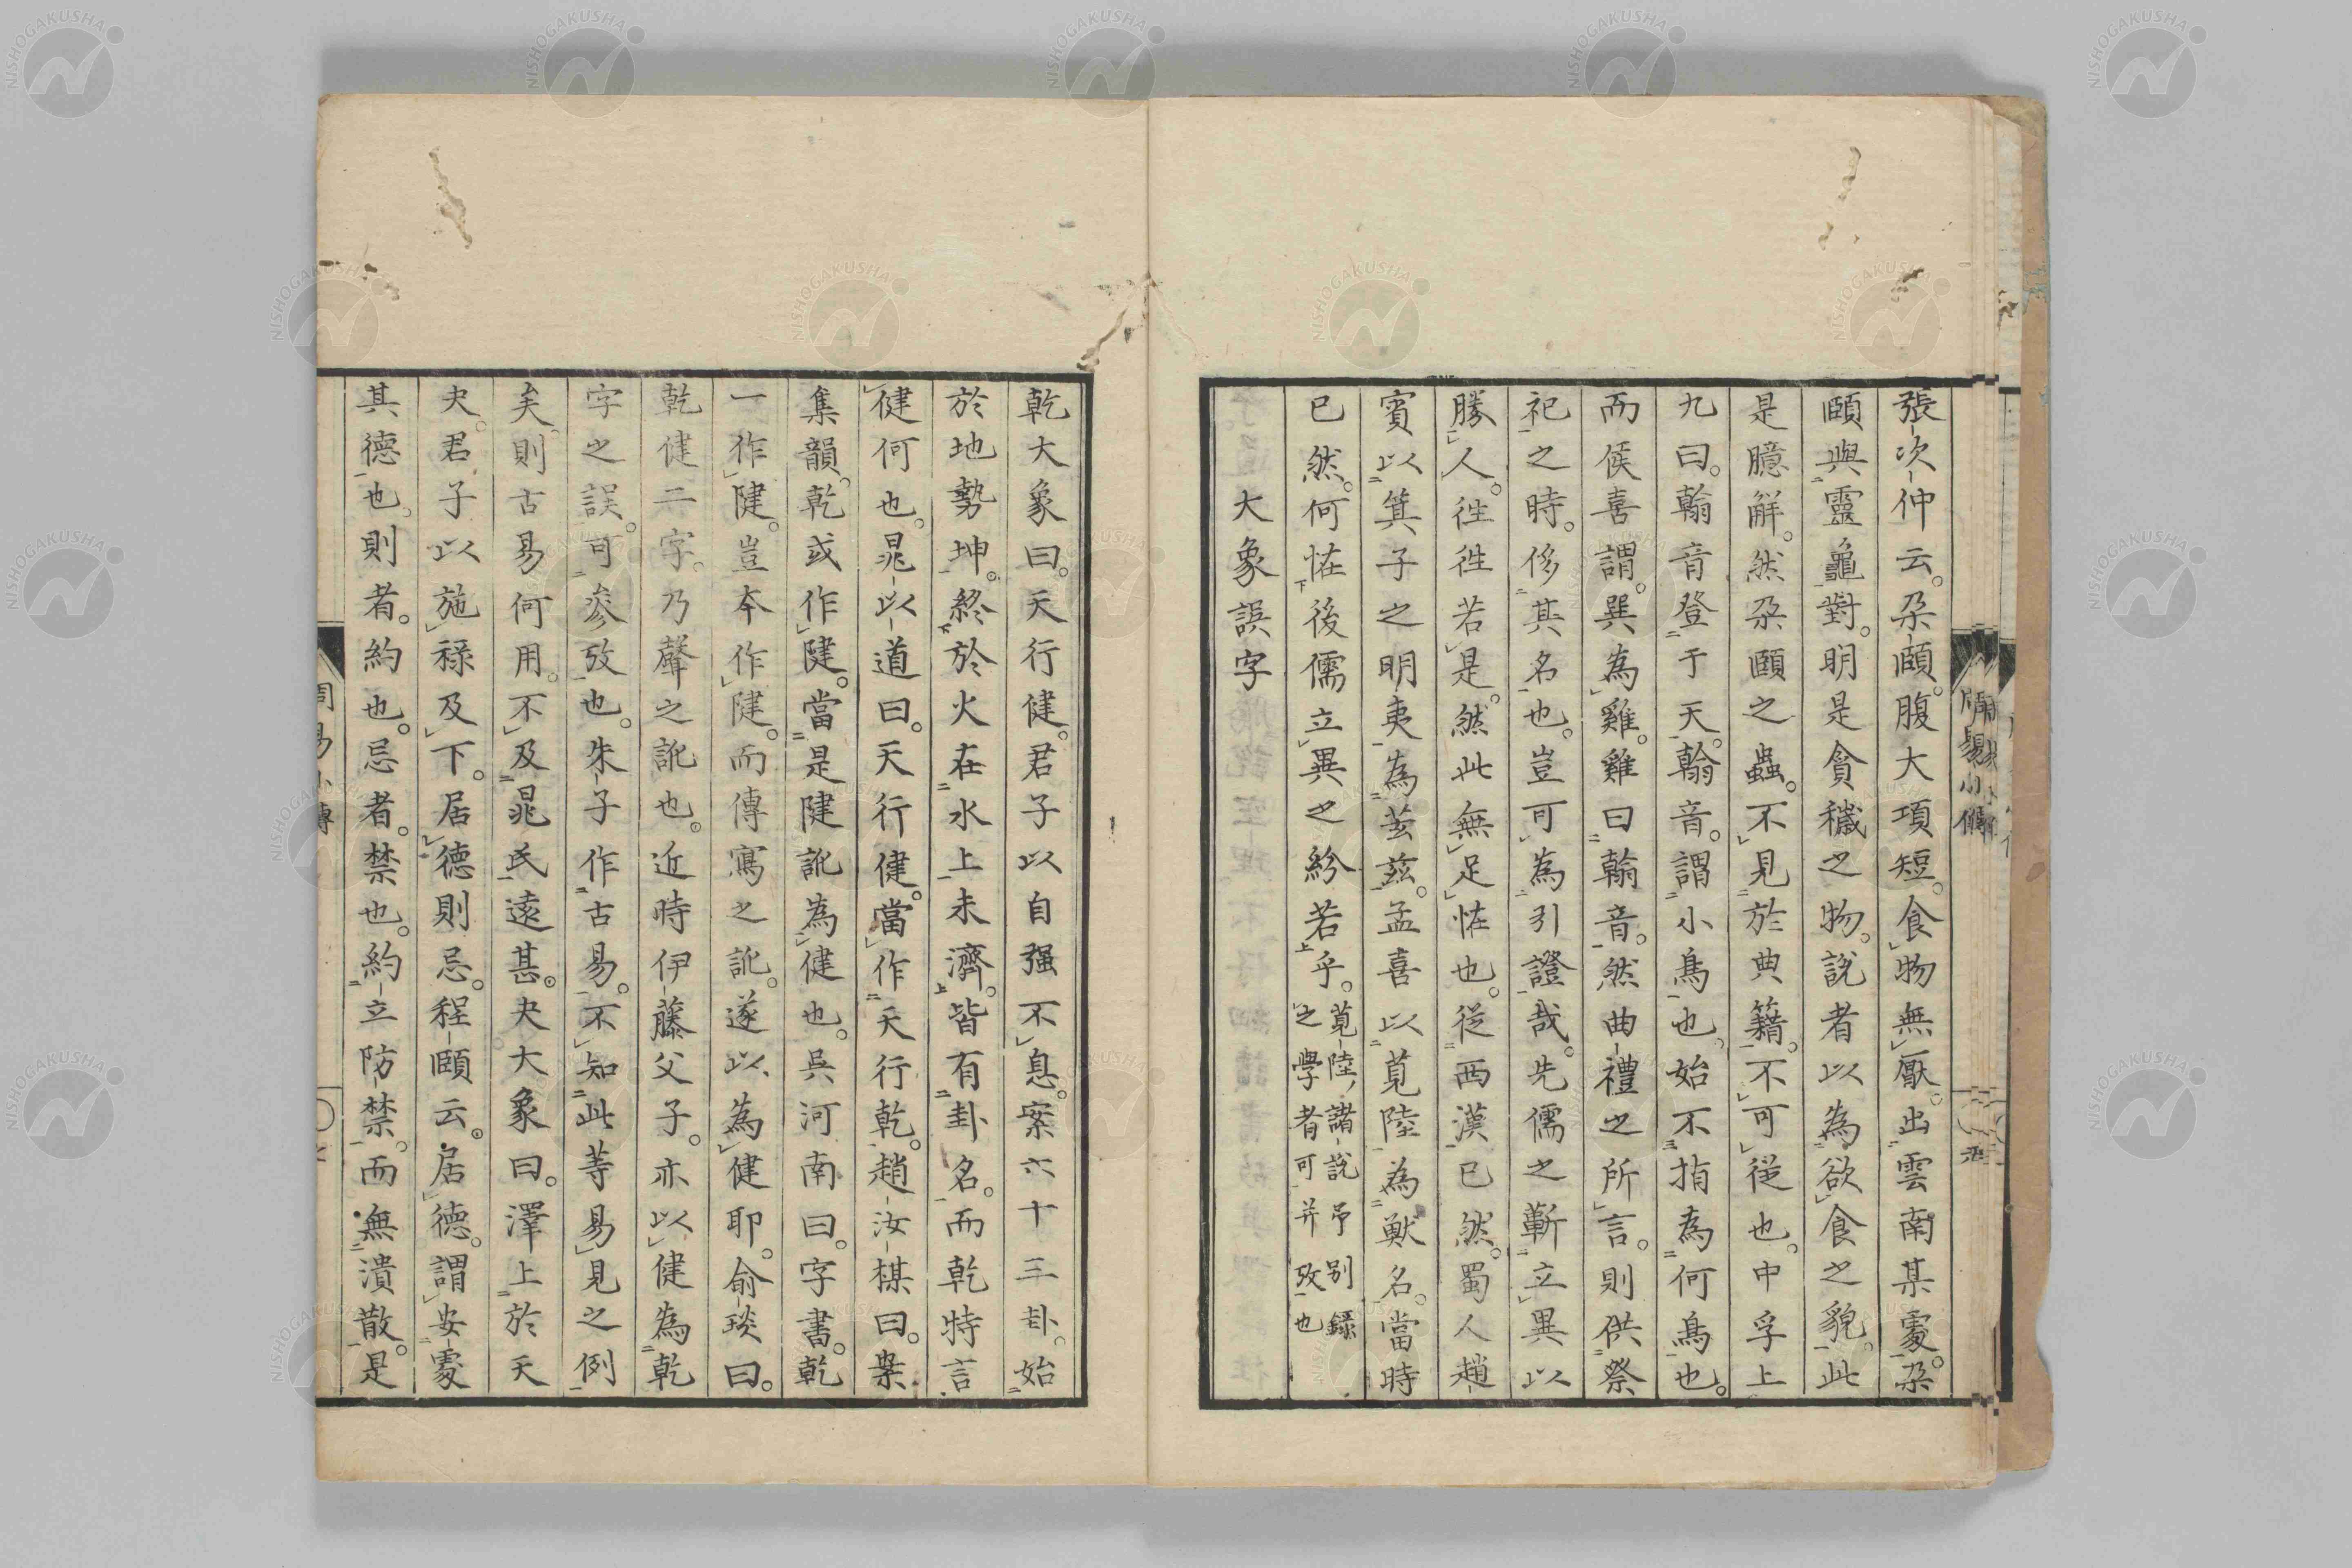 張次仲云。朶頤。腹大項短。食物無厭。出雲南某䖏。朶
頤與靈龜對。明是貪穢之物。說者以為欲食之貌。此
是臆解。然朶頤之蟲。不見於典籍。不可從也。中孚上
九曰。翰音登于天。翰音。謂小鳥也。始不指為何鳥也。
而侯喜謂。巽為雞。雞曰翰音。然曲禮之所言。則供祭
祀之時。侈其名也。豈可為引證哉。先儒之蘄立異以
勝人。往往若是。然此無足恠也。從西漢已然。蜀人趙
賓以箕子之明夷為荄茲。孟喜以莧陸為獸名。當時
已然。何恠後儒立異之紛若乎。莧陸諸說予别錄
之學者可并攷也
大象誤字
周易小傳
乾大象曰。天行健。君子以自强不息。案六十三卦。始
於地勢坤。終於火在水上未濟。皆有卦名。而乾特言
健何也。晁以道曰。天行健。當作天行乾。趙汝楳曰。案
集韻。乾或作䭈。當是䭈訛為健也。吳河南曰。字書。乾
一作䭈。豈本作䭈。而傳寫之訛。遂以為健耶。俞琰曰。
乾健二字。乃聲之訛也。近時伊藤父子。亦以健為乾
字之誤。可參攷也。朱子作古易。不知此等易見之例
矣。則古易何用。不及晁氏遠甚。夬大象曰。澤上於天
夬。君子以施祿及下。居德則忌。程頤云。居德。謂安䖏
其德也。則者。約也。忌者。禁也。約立防禁。而無潰散。是
周易小傳